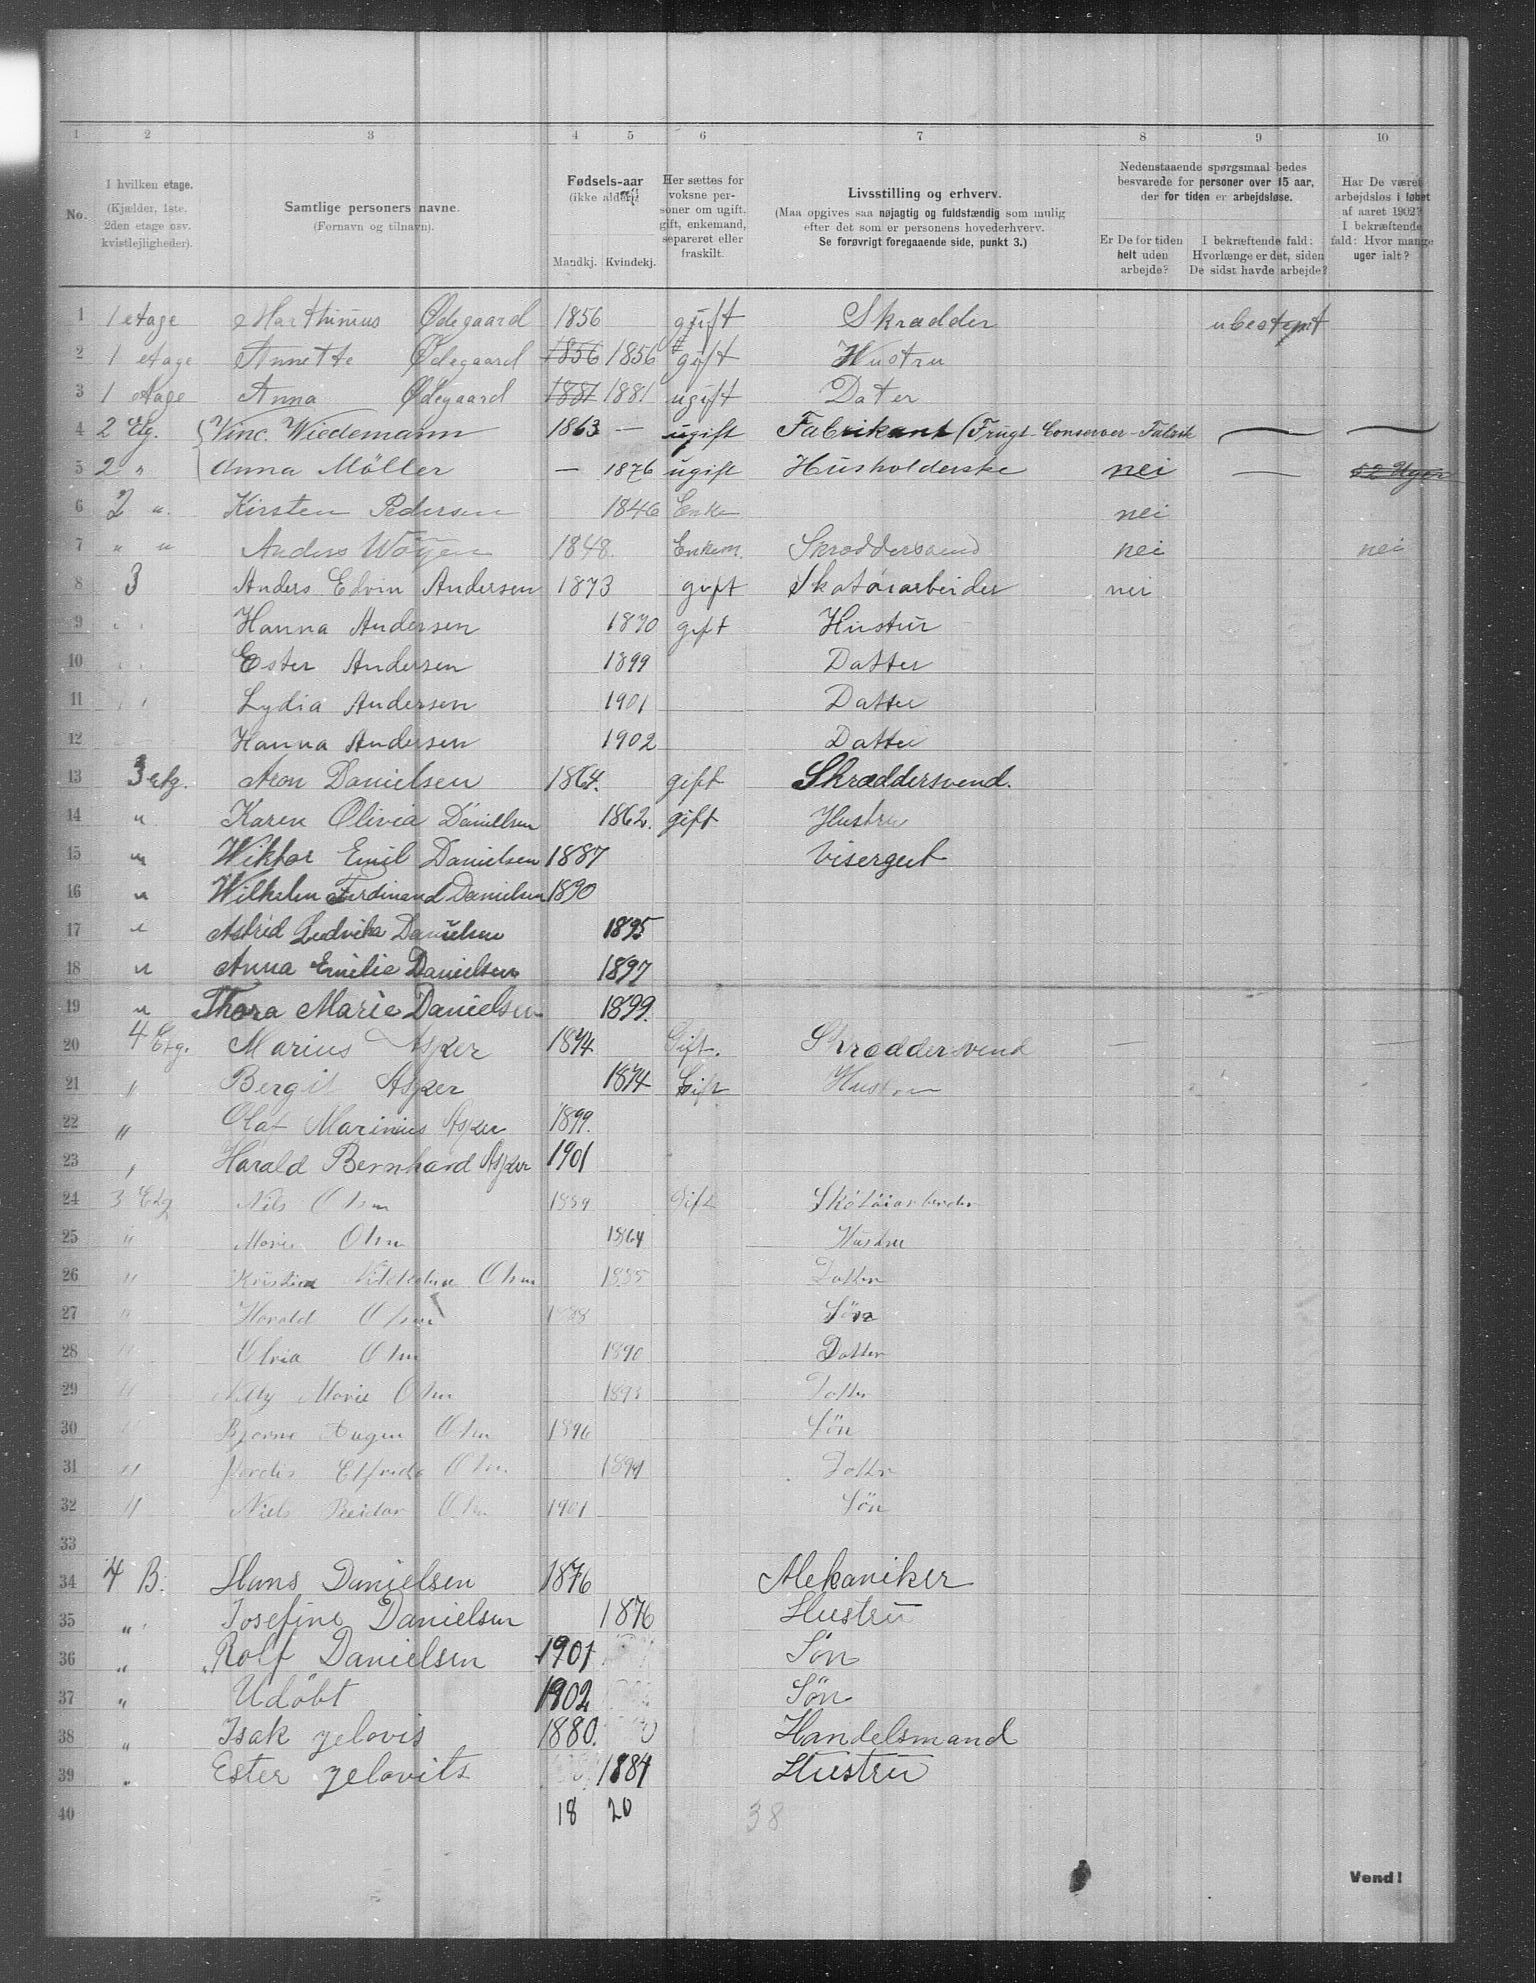 1 2 3 4 5 6 7 8 9 10
No. I hvilken etage. (Kjælder, 1ste. 2den etage osv. kvistlejligheder).
Samtlige personers navne. (Fornavn og tilnavn).
Fødsels-aar (ikke alder)! Mandkj. Kvindekj.
Her sættes for voksne personer om ugift, gift, enkemand, separeret eller fraskilt.
Livsstilling og erhverv. (Maa opgives saa nøjagtig og fuldstændig som mulig efter det som er personens hovederhverv. Se forøvrigt foregaaende side, punkt 3.)
Nedenstaaende spørgsmaal bedes besvarede for personer over 15 aar, der for tiden er arbejdsløse.
Er De for tiden helt uden arbejde?
I bekræftende fald: Hvorlænge er det, siden De sidst havde arbejde?
Har De været arbejdsløs i løbet af aaret 1902? I bekræftende fald: Hvor mange uger ialt?
1 1 etage Marthinius Ødegaard 1856 gift Skrædder ubestemt
2 1 etage Annette Ødegaard 1856 1856 gift Hustru
3 1 etage Anna Ødegaard 1881 1881 ugift Dater
4 2 Etg. Vinc. Wiedemann 1863 — ugift Fabrikant (Frugt-Conserver-Fabrik — —
5 2 " Anna Möller — 1876 ugift Husholderske nei — 52 Uger
6 2 " Kirsten Pedersen 1846 Enke nei
7 " " Anders 1848. Enkem. Skræddersvend nei nei
8 3 Anders Edvin Andersen 1873 gift Skotøiarbeider nei
9 " " Hanna Andersen 1870 gift Hustru
10 " " Ester Andersen 1899 Datter
11 " " Lydia Andersen 1901 Datter
12 Hanna Andersen 1902 Datter
13 3 etg. Aron Danielsen 1864. gift Skræddersvend.
14 " Karen Olivia Danielsen 1862. gift Hustru
15 " Wiktor Emil Danielsen 1887 Visergut
16 " Wilhelm Ferdinand Danielsen 1890
17 " Astrid Ludvika Danielsen 1895
18 " Anna Emilie Danielsen 1897
19 " Thora Marie Danielsen 1899.
20 4 Etg. Marius Asker 1874 Gift. Skræddersvend — —
21 " Bergit Asker 1874 Gift Hustru
22 " Olaf Marinius Asker 1899.
23 " Harald Bernhard Asker 1901
24 3 Etg Nils Olsen 1859 Gift Skotøiarbeider
25 " Marie Olsen 1864 Hustru
26 " Kristine Olsen 1885 Datter
27 " Harald Olsen 1888 Søn
28 " Olivia Olsen 1890 Datter
29 " Nelly Marie Olsen 1893 Datter
30 Bjarne Eugen Olsen 1896 Søn
31 " Hjordis Elfrida Olsen Datter
32 " Niels Reidar Olsen 1901 Søn
33
34 4 B. Hans Danielsen 1876 Mekaniker
35 " " Josefine Danielsen 1876 Hustru
36 " Rolf Danielsen 1901 Søn
37 " Udøbt 1902 Søn
38 " Isak Jelovis 1880. Handelsmand
39 " Ester Jelovits 1884 Hustru
40 18 20 38
Vend!